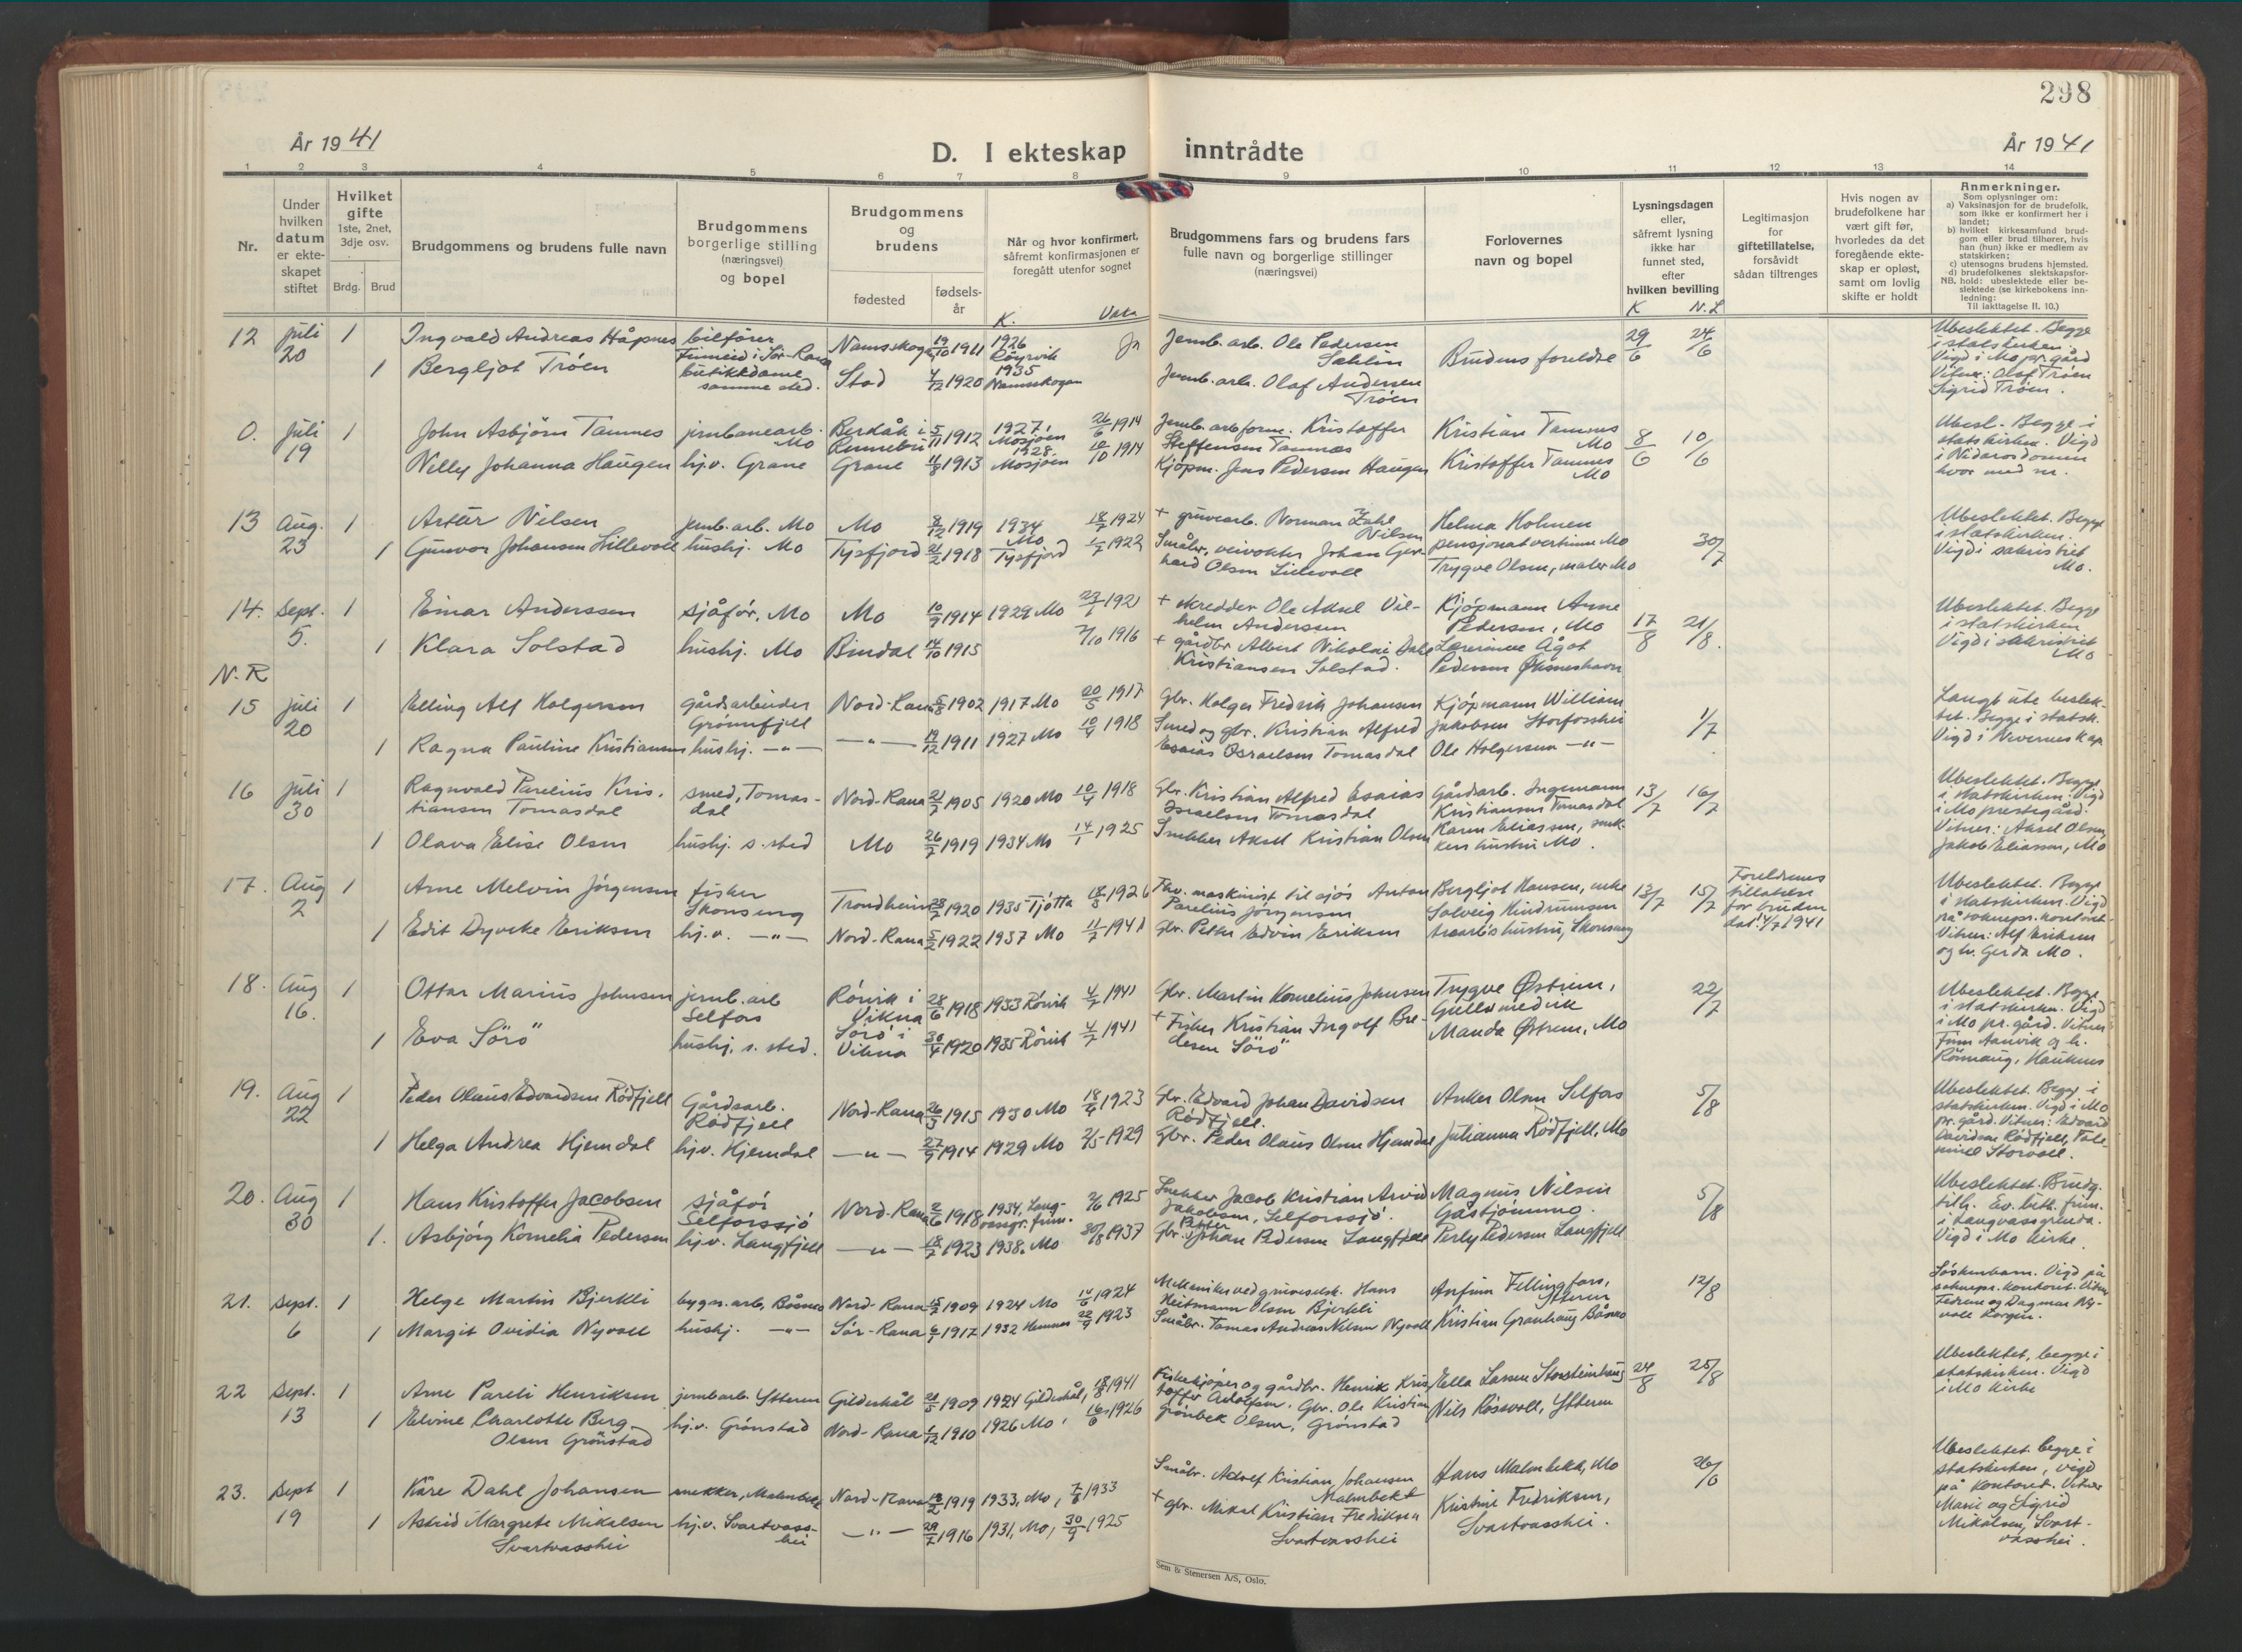 298
År 1941
D. I ekteskap inntrådte
År 1941
1 2 3 4 5 6 7 8 9 10 11 12 13 14
Nr.
Under hvilken datum er ekte-skapet stiftet
Hvilket gifte 1ste, 2net, 3dje osv.
Brdg. Brud
Brudgommens og brudens fulle navn
Brudgommens borgerlige stilling (næringsvei) og bopel
Brudgommens og brudens
fødested
fødsels-år
Når og hvor konfirmert, såfremt konfirmasjonen er foregått utenfor sognet
K. Vaks
Brudgommens fars og brudens fars fulle navn og borgerlige stillinger (næringsvei)
Forlovernes navn og bopel
Lysningsdagen eller, såfremt lysning ikke har funnet sted, efter hvilken bevilling
K N.L
Legitimasjon for giftetillatelse, forsåvidt sådan tiltrenges
Hvis nogen av brudefolkene har vært gift før, hvorledes da det foregående ekte-skap er opløst, samt om lovlig skifte er holdt
Anmerkninger.
Som oplysninger om:
a) Vaksinasjon for de brudefolk, som ikke er konfirmert her i landet;
b) hvilket kirkesamfund brud-gom eller brud tilhører, hvis han (hun) ikke er medlem av statskirken;
c) utensogns brudens hjemsted.
d) brudefolkenes slektskapsfor-hold: ubeslektede eller be-slektede (se kirkebokens inn-ledning:
NB.
Til iakttagelse II. 10.)
12 juli 20 1 Ingvald Andreas Håpnes bilfører Finneid i Sør-Rana Namsskogan 19/10 1911 1926 Røyrvik Ja Jernb.arb. Ole Pedersen Brudens foreldre 29/6 24/6 Ubeslektet. Begge i statskirken. Vigd i Mo pr.gård Vitner: Olaf Trøen Sigrid Trøen.
1 Bergljot Trøen butikkdame samme sted. Stod 4/12 1920 1935 Namsskogan Jernb.arb. Olaf Andersen Trøen
0. Juli 19 1 John Asbjørn Tamnes jernbanearb. Mo Berkåk i Rennebu 5/11 1912 1927, Mosjøen 26/6 1914 Jernb.arbform. Kristoffer Steffensen Tamnes Kristian Tamnes Mo 8/6 10/6 Ubesl. Begge i statskirken. Vigd i Nidarosdomen
Nelly Johanna Haugen hj.v. Grane Grane 11/9 1913 1928 Mosjøen 10/10 1914 Kjøpm. Jens Pedersen Haugen Kristoffer Tamnes Mo
13 Aug. 23 1 Artur Nilsen jernb.arb. Mo Mo 8/12 1919 1934 Mo 18/7 1924 + gruvearb. Norman Zahl Nilsen Helma Holmen pensjonatvertinne Mo 30/7 Ubeslektet. Begge i statskirken. Vigd i sakristiet Mo.
1 Gunvor Johansen Lillevoll hushj. Mo Tysfjord 21/2 1918 Tysfjord 1/7 1922 Småbr, veivokter Johan Ger-hard Olsen Lillevoll Trygve Olsen, maler Mo
14. Sept. 5. 1 Einar Anderssen sjåfør, Mo Mo 10/9 1914 1929 Mo 1921 + skredder Ole Aksel Vil-helm Anderssen Kjøpmann Arne Pedersen, Mo 17/8 21/8. Ubeslektet. Begge i statskirken Vigd i sakristiet Mo
1 Klara Solstad hushj. Mo Bindal 14/10 1915 7/10 1916 + gårdbr Albert Nikolai Dahl Kristiansen Solstad. Lærerinne Ågot Pedersen Øksneshavn
N.R
15 juli 20 1 Elling Alf Holgersen gårdsarbeider Grønnfjell Nord-Rana 5/8 1902 1917 Mo 20/5 1917 Gbr. Holger Fredrik Johansen Kjøpmann William Jakobsen Storforshei 1/7 Langt ute beslek-tet. Begge i statsk. Vigd i Nevernes kap.
1 Ragna Pauline Kristiansen hushj. —"— —"— 19/12 1911 1927 Mo 10/4 1918 Smed og gbr. Kristian Alfred Esaias Israelsen Tomasdal Ole Holgersen —"—
16 juli 30 1 Ragnvald Parelius Kris-tiansen Tomasdal smed, Tomas-dal Nord-Rana 21/7 1905 1920 Mo 10/4 1918 Gbr. Kristian Alfred Esaias Israelsen Tomasdal Gårdsarb. Ingemann Kristiansen Tomasdal 13/7 16/7 Ubeslektet. Begge i statskirken. Vigd i Mo prestegård. Vitner: Aksel Olsen, Jakob Eliassen, Mo
1 Olava Elise Olsen hushj. s. sted Mo 26/7 1919 1934 Mo 14/1 1925 Snekker Aksel Kristian Olsen Karen Eliassen, snek-kers hustru Mo.
17. Aug 2 1 Arne Melvin Jørgensen fisker Skonseng Trondheim 28/7 1920 1935 Tjøtta 18/8 1926 Fhv. maskinist til sjøs Anton Parelius Jørgensen Bergljot Hansen, enke 13/7 15/7 Foreldrenes tillatelse for bruden dat: 4/7 1941 Ubeslektet. Begge i statskirken. Vigd på sokneprs. kontoret. Vitner: Alf Eriksen og hr. Gerda Mo.
1 Edit Dyveke Eriksen hj.v. —"— Nord-Rana 5/2 1922 1937 Mo 11/7 1941 Gbr. Petter Edvin Eriksen Solveig Hindrumsen hustru, Skonseng
18. Aug 16. 1 Ottar Marius Johnsen jernb.arb Selfors Rørvik i Vikna 28/6 1918 1933 Rørvik 4/7 1941 Gbr. Martin Kornelius Johnsen Trygve Østrem, Gullsmedvik 22/7 Ubeslektet. Begge i statskirken. Vigd i Mo pr.gård. Vitner Finn Aanvik og h. Rønnaug, Hauknes
1 Eva Sörö hushj. s. sted. Sörö i Vikna 30/4 1920 1935 Rørvik 4/7 1941 + Fisker Kristian Ingolf Bre-desen Sörö Manda Østrem, Mo
19. Aug 22 1 Peder Olaus Edvardsen Rødfjell Gårdsarb. Rødfjell Nord-Rana 26/3 1915 1930 Mo 18/4 1923 Gbr. Edvard Johan Davidsen Rødfjell. Anker Olsen Selfors 5/8 Ubeslektet. Begge i statskirken. Vigd i Mo pr. gård. Vitner: Edvard Davidsen Rødfjell, Storvoll.
1 Helga Andrea Hjemdal hj.v. Hjemdal —"— 27/9 1914 1929 Mo 2/5 1929 Gbr. Peder Olaus Olsen Hjemdal Julianna Rødfjell, Mo
20. Aug 30 1 Hans Kristoffer Jacobsen sjåfør Selforssjø Nord-Rana 2/6 1918 1934, Lang-vassgr. frim. 2/6 1925 Snekker Jacob Kristian Arvid Jakobsen, Selforssjø. Magnus Nilsen Gåstjønnmo. 5/8 Ubeslektet. Brudg. tilh. Ev. luth. frim. i Langvassgrenda. Vigd i Mo kirke
1. Asbjørg Kornelia Pedersen hj.v. Langfjell —"— 18/7 1923 1938. Mo 30/8 1937 Gbr. Petter Johan Pedersen Langfjell Perly Pedersen Langfjell
21. Sept. 6 1 Helge Martin Bjerkli bygn.arb, Båsmo Nord-Rana 15/2 1909 1924 Mo 14/6 1924 Mekaniker ved gruveselsk. Hans Heitmann Olsen Bjerkli Anfinn Fellingfors, Ytteren 12/8 Søskenbarn. Vigd på soknepr. kontoret. Vitner Fedrene og Dagmar Ny-voll Korgen.
1 Margit Ovidia Nyvoll hushj. —"— Sør-Rana 6/1 1917 1932 Hemnes 22/9 1923 Småbr. Tomas Andreas Nilsen Nyvoll Kristian Granhaug Båsmo
22 Sept. 13 1 Arne Pareli Henriksen jernb.arb. Ytteren Gildeskål 21/5 1909 1924 Gildeskål, 18/8 1941 Fiskekjøper og gårdbr. Henrik Kris-toffer Adolfsen. Ella Larsen Storsteinhaug 24/8 25/8 Ubeslektet, begge i statskirken. Vigd i Mo kirke
1 Elvine Charlotte Berg-Olsen Grønstad hj.v. Grønstad Nord-Rana 1/12 1910 1926 Mo, 16/6 1926 Gbr. Ole Kristian Grønbek Olsen, Grønstad Nils Røsvoll, Ytteren
23. Sept 19 1 Kåre Dahl Johansen snekker, Malmbekk Nord-Rana 18/2 1919 1933, Mo, 7/8 1933 Småbr. Adolf Kristian Johansen Malmbekk Hans Malmbekk, Mo 26/8 Ubeslektet. begge i statskirken, vigd på kontoret. Vitner Marie og Sigrid Mikalsen, Svart-vasshei.
1 Astrid Margrete Mikalsen Svartvasshei hj.v. Svartvass-hei —"— 29/7 1916 1931, Mo, 30/9 1925 + gbr. Mikal Kristian Fredriksen Svartvasshei Kristine Fredriksen, Svartvasshei.
Sem & Stenersen A/S, Oslo.